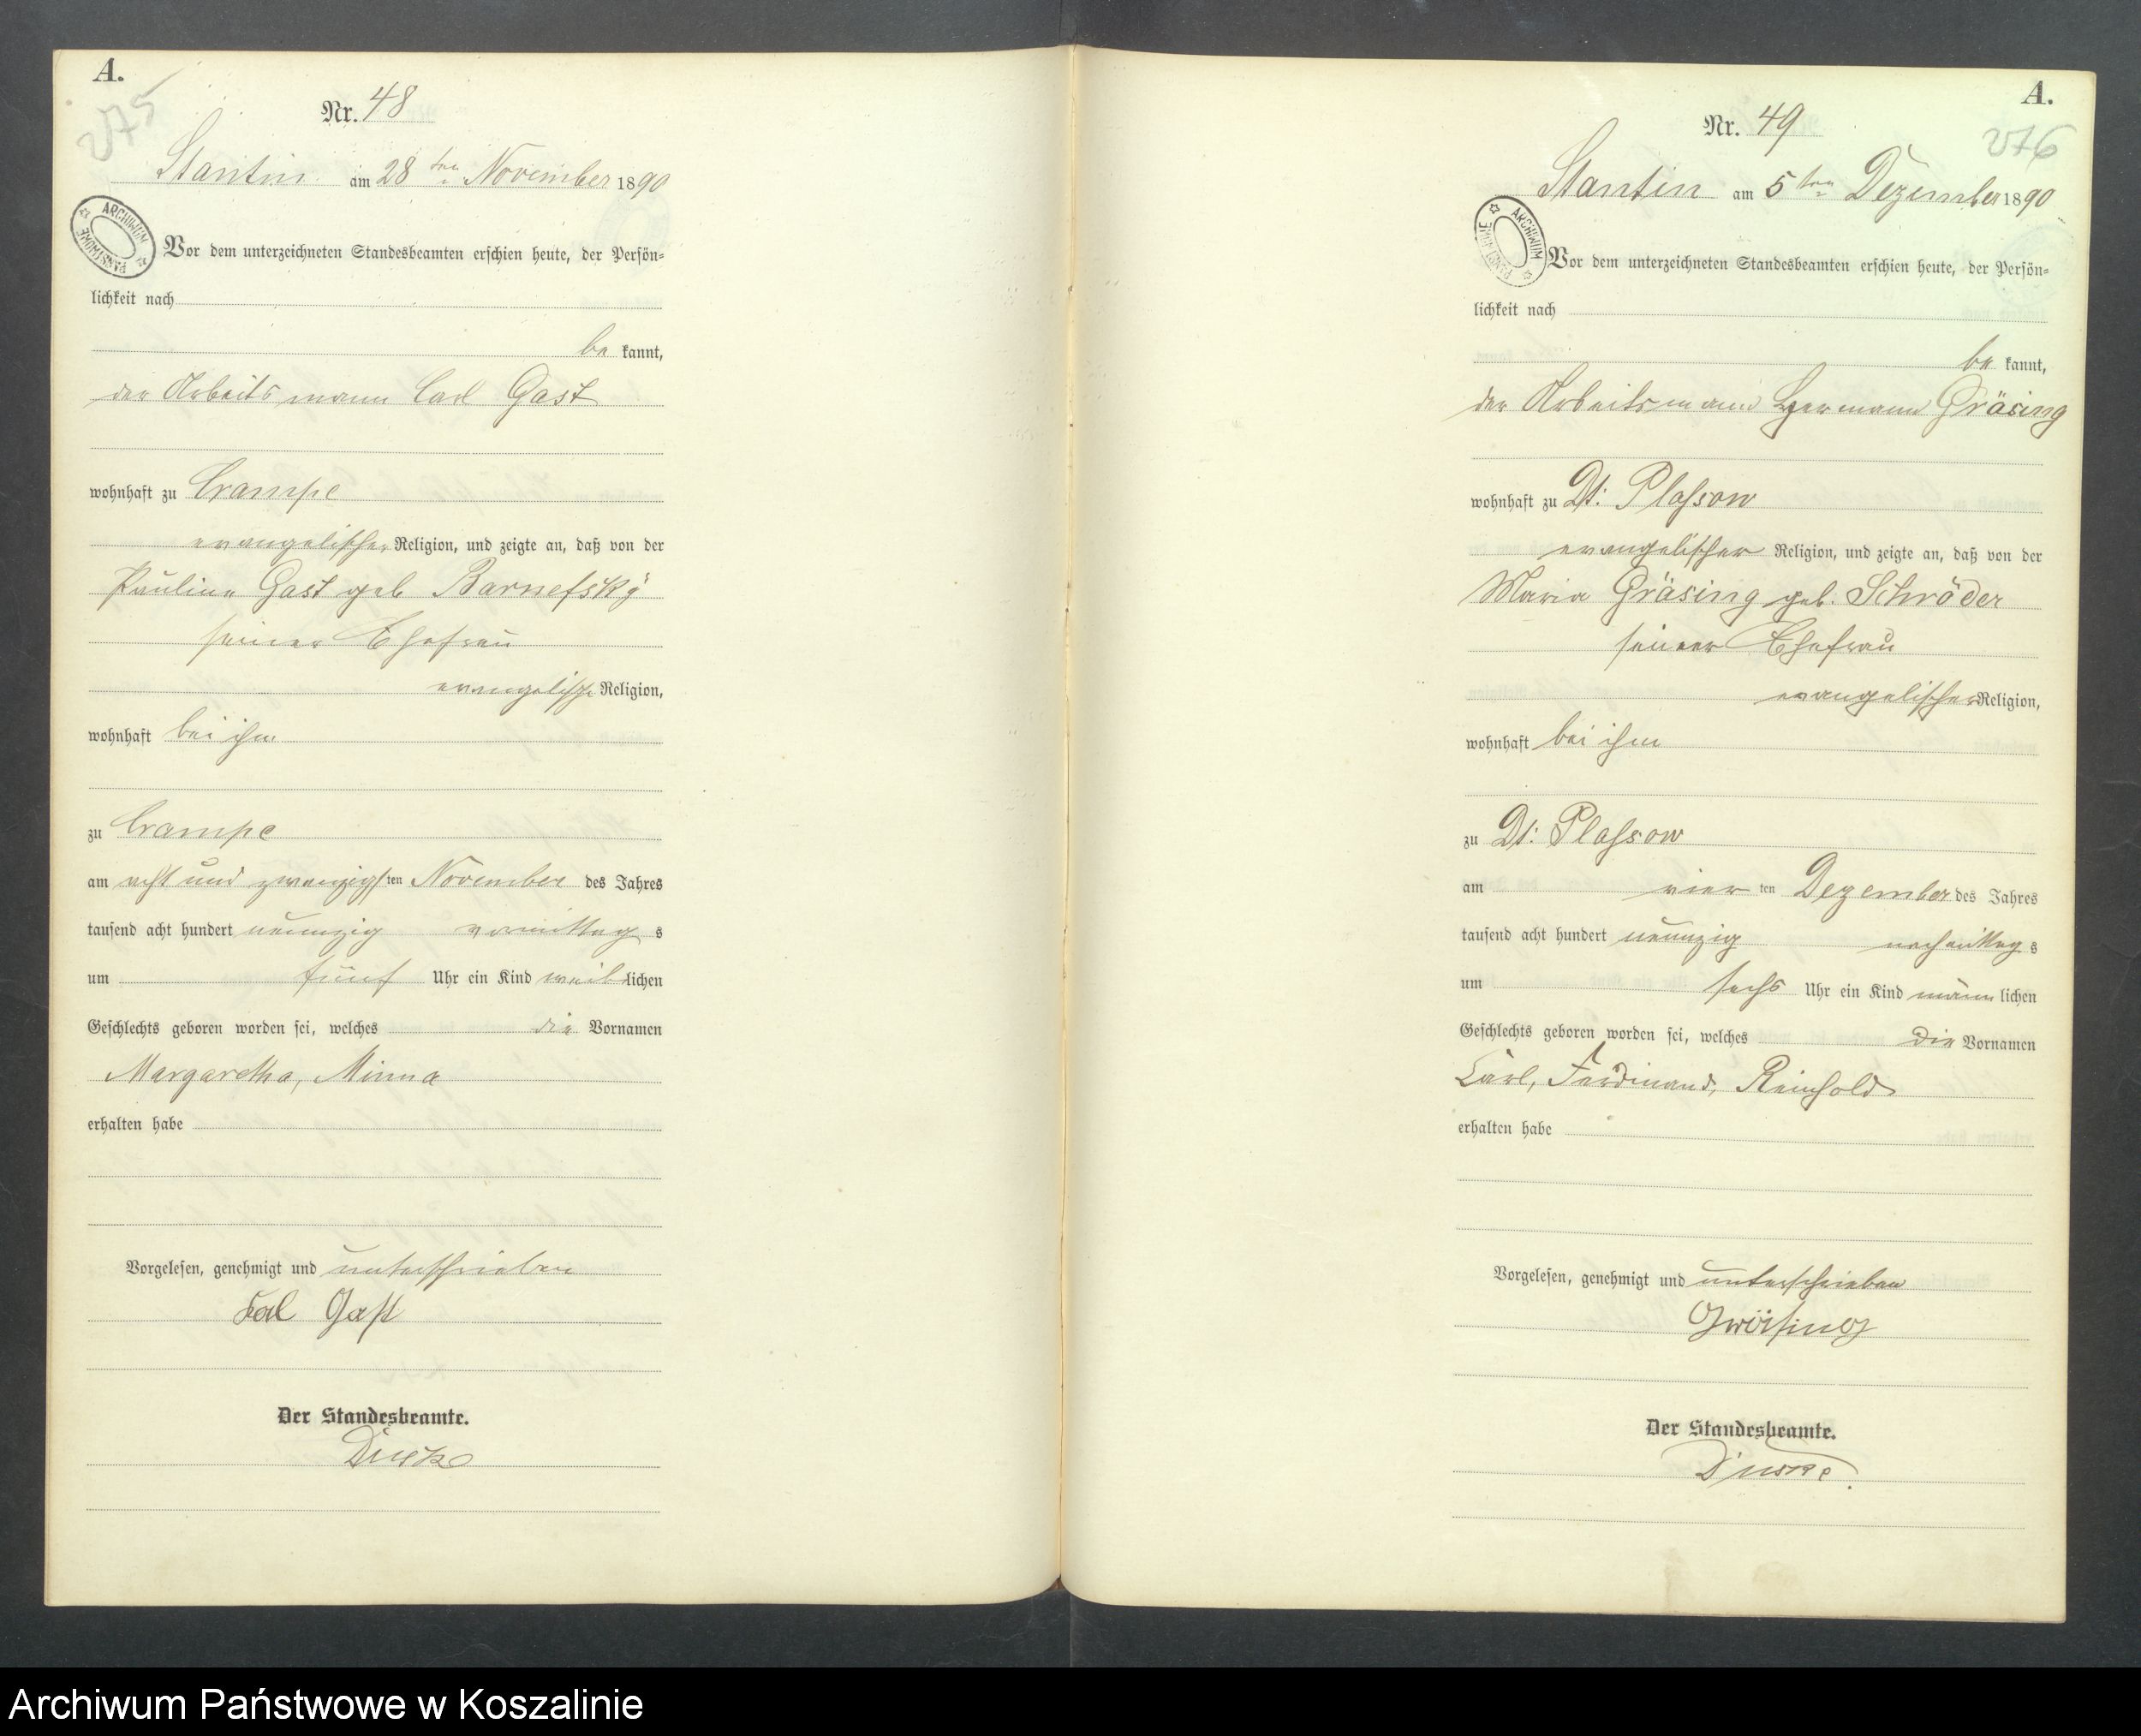 A.
275
Nr. 48
Stantin am 28ten November 1890
ARCHIWUM PAŃSTWOWE
Vor dem unterzeichneten Standesbeamten erschien heute, der Persön=
lichkeit nach
be kannt,
der Arbeitsmann Carl Gast
wohnhaft zu Crampe
evangelischer Religion, und zeigte an, daß von der
Pauline Gast geb Barnefsky
seiner Ehefrau
evangelischer Religion,
wohnhaft bei ihm
zu Crampe
am acht und zwanzigsten November des Jahres
tausend acht hundert neunzig vormittag s
um fünf Uhr ein Kind weiblichen
Geschlechts geboren worden sei, welches die Vornamen
Margaretha, Minna
erhalten habe
Vorgelesen, genehmigt und unterschrieben
Karl Gast
Der Standesbeamte.
A.
276
Nr. 49
Stantin am 5ten Dezember 1890
ARCHIWUM PAŃSTWOWE
Vor dem unterzeichneten Standesbeamten erschien heute, der Persön=
lichkeit nach
be kannt,
der Arbeitsmann Hermann Gräsing
wohnhaft zu Dt: Plassow
evangelischer Religion, und zeigte an, daß von der
Maria Gräsing geb. Schröder
seiner Ehefrau
evangelischer Religion,
wohnhaft bei ihm
zu Dt: Plassow
am vier ten Dezember des Jahres
tausend acht hundert neunzig nachmittag s
um sechs Uhr ein Kind männlichen
Geschlechts geboren worden sei, welches die Vornamen
Carl, Ferdinand, Reinhold
erhalten habe
Vorgelesen, genehmigt und unterschrieben
Gräsing
Der Standesbeamte.
Archiwum Państwowe w Koszalinie